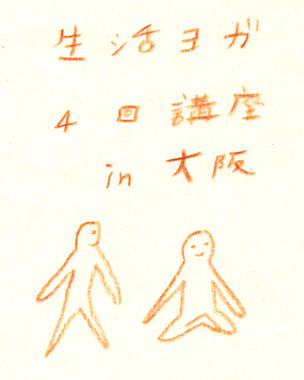 生活ヨガ
4回講座
in 大阪